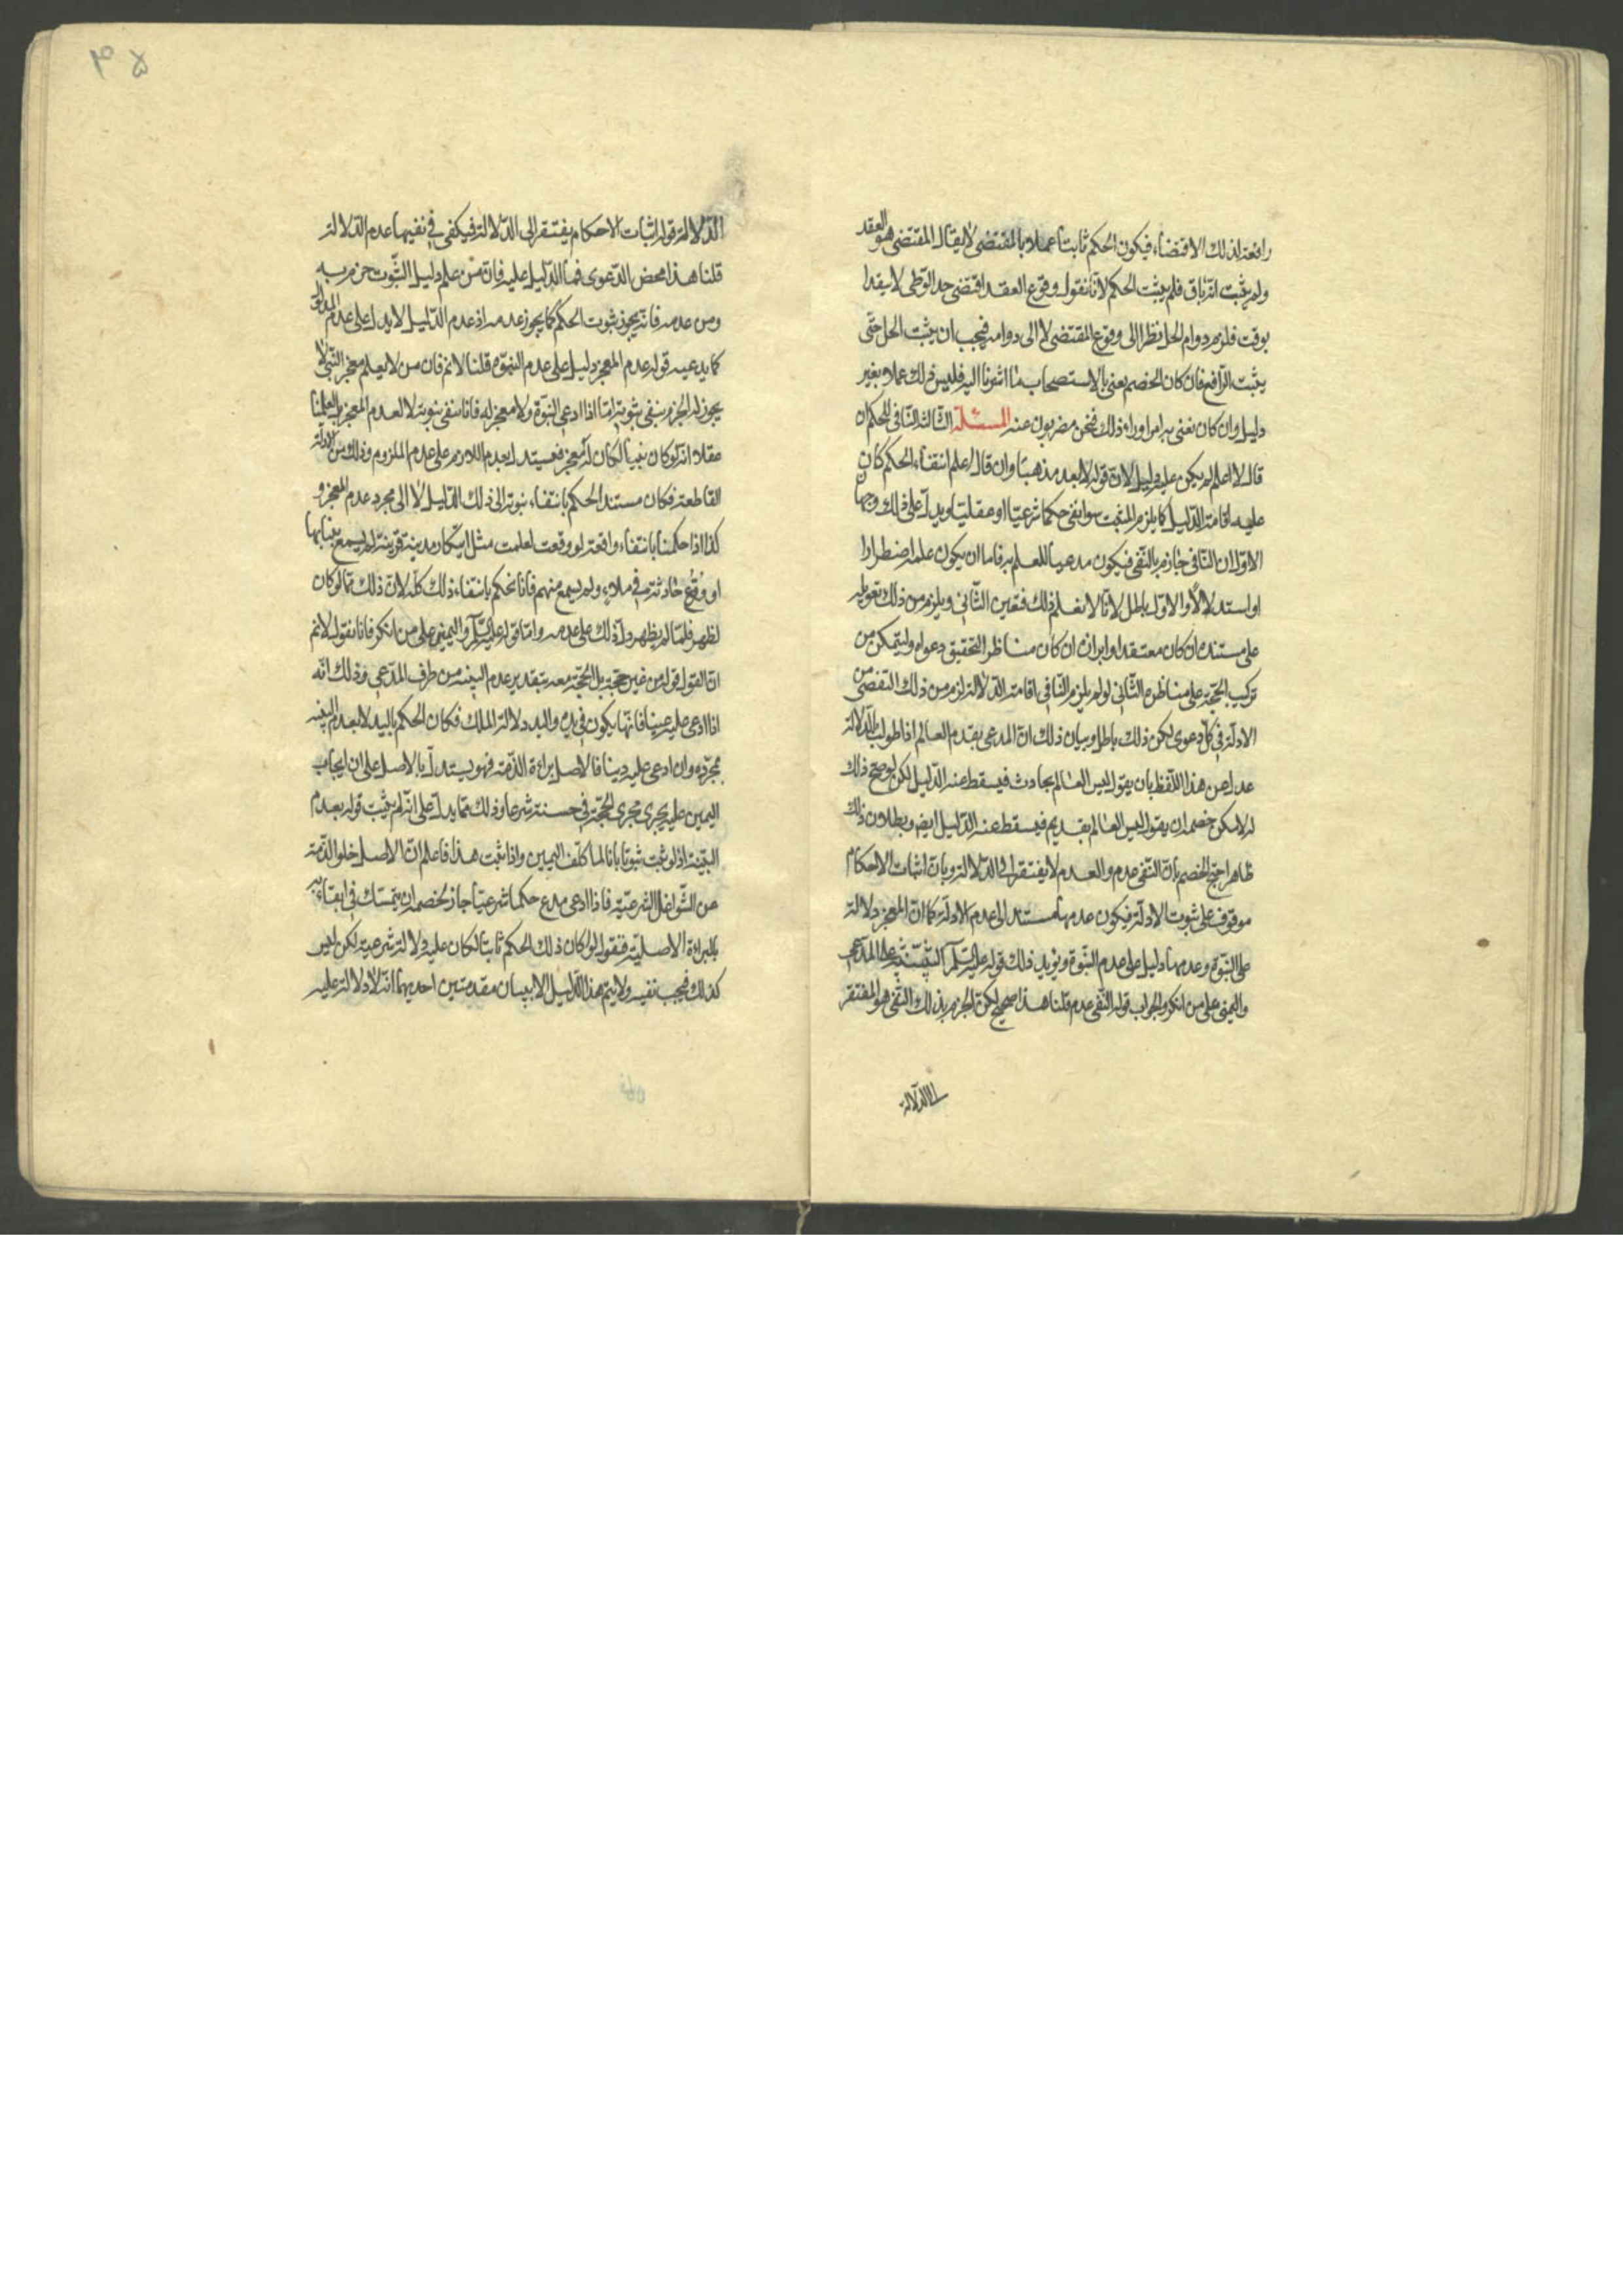 رافعة لذلك الاقتضاء، فيكون الحكم ثابتا عملا بالمقتضى لا يقال المقتضى هو العقد
ولم يثبت انه باق فلم يثبت الحكم لانا نقول وقوع العقد اقتضى حل الوطى لا مقيدا
بوقت فلزم دوام الحل نظرا الى وقوع المقتضى لا الى دوامه فيجب ان يثبت الحل حتى
يثبت الرافع فان كان الخصم يعنى بالاستصحاب ما اشرنا اليه فليس ذلك عملا بغير
دليل وان كان يعنى به امرا وراء ذلك فنحن مضربون عنه المسئلة الثالثة النافى للحكم ان
قال لا اعلم لم يكن عليه دليل لان قوله لا يعد مذهبا وان قال اعلم انتفاء الحكم كان
عليه اقامة الدليل كما يلزم المثبت سوا نفى حكما شرعيا او عقليا ويدل على ذلك وجهان
الاول ان النافى جازم بالنفى فيكون مدعيا للعلم به فاما ان يكون علمه اضطرارا
او استدلالا والاول باطل لانا لا نعلم ذلك فتعين الثانى ويلزم من ذلك تعويله
على مستند ان كان معتقدا وابرازه ان كان مناظرا لتحقيق دعواه وليتمكن من
تركيب الحجة على مناظره الثانى لو لم يلزم النافى اقامة الدلالة لزم من ذلك التفصى من
الادلة فى كل دعوى لكن ذلك باطل وبيان ذلك ان المدعى بقدم العالم اذا طولب بالدلالة
عدل عن هذا اللفظ بان يقول ليس العالم بحادث فيسقط عنه الدليل لكن لو صح ذلك
له لامكن خصمه ان يقول ليس العالم بقديم فيسقط عنه الدليل ايضا وبطلان ذلك
ظاهر احتج الخصم بان النفى عدم والعدم لا يفتقر الى الدلالة وبان اثبات الاحكام
موقوف على ثبوت الادلة فيكون عدمها مستندا الى عدم الادلة كما ان المعجز دلالة
على النبوة وعدمها دليل على عدم النبوة ويؤيد ذلك قوله عليه السلم البينة على المدعى
واليمين على من انكر والجواب قوله النفى عدم قلنا هذا صحيح لكن الجزم بذلك النفى هو المفتقر
الى الدلالة
الدلالة قوله اثبات الاحكام يفتقر الى الدلالة فيكفى فى نفيها عدم الدلالة
قلنا هذا محض الدعوى فما الدليل عليه فان من علم دليل الثبوت جزم به
ومن عدمه فانه يجوز ثبوت الحكم كما يجوز عدمه اذ عدم الدليل لا يدل على عدم المدلول
كما يدعيه قوله عدم المعجز دليل على عدم النبوة قلنا لا نم فان من لا يعلم معجز النبى لا
يجوز له الجزم بنفى نبوته اما اذا ادعى النبوة ولا معجز له فانا ننفى نبوته لا لعدم المعجز بل لعلمنا
عقلا انه لو كان نبيا لكان له معجز فيستدل بعدم اللازم على عدم الملزوم وذلك من الادلة
القاطعة فكان مستند الحكم بانتفاء نبوته الى ذلك الدليل لا الى مجرد عدم المعجز و
كذا اذا حكمنا بانتفاء واقعة لو وقعت لعلمت مثل مدينة قريبة لم يسمع بنبائها
او وقوع حادثة فى ملاء، ولم يسمع منهم فانا نحكم بانتفاء ذلك كله لان ذلك مما لو كان
لظهر فلما لم يظهر دل ذلك على عدمه واما قوله عليه السلم واليمين على من انكر فانا نقول لا نم
ان القول قوله من غير حجة بل الحجة معه بتقدير عدم البينة من طرف المدعى وذلك انه
اذا ادعى عليه عينا فانها يكون فى يده واليد دلالة الملك فكان الحكم باليد لا بعدم البينة
مجرده وان ادعى عليه دينا فالاصل براءة الذمة فهو يستدل بالاصل على ان ايجاب
اليمين عليه يجرى مجرى الحجة فى شرعا وذلك مما يدل على انه لم يثبت قوله بعدم
البينة اذ لو ثبت ثبوتا باتا لما كلف اليمين واذا ثبت هذا فاعلم ان الاصل خلو الذمة
عن الشواغل الشرعية فاذا ادعى مدع حكما شرعيا جاز لخصمه ان يتمسك فى
بالبراءة الاصلية فنقول لو كان ذلك الحكم ثابتا لكان عليه دلالة شرعية لكن ليس
كذلك فيجب نفيه ولا يتم هذا الدليل الا ببيان مقدمتين احديهما انه لا دلالة عليه